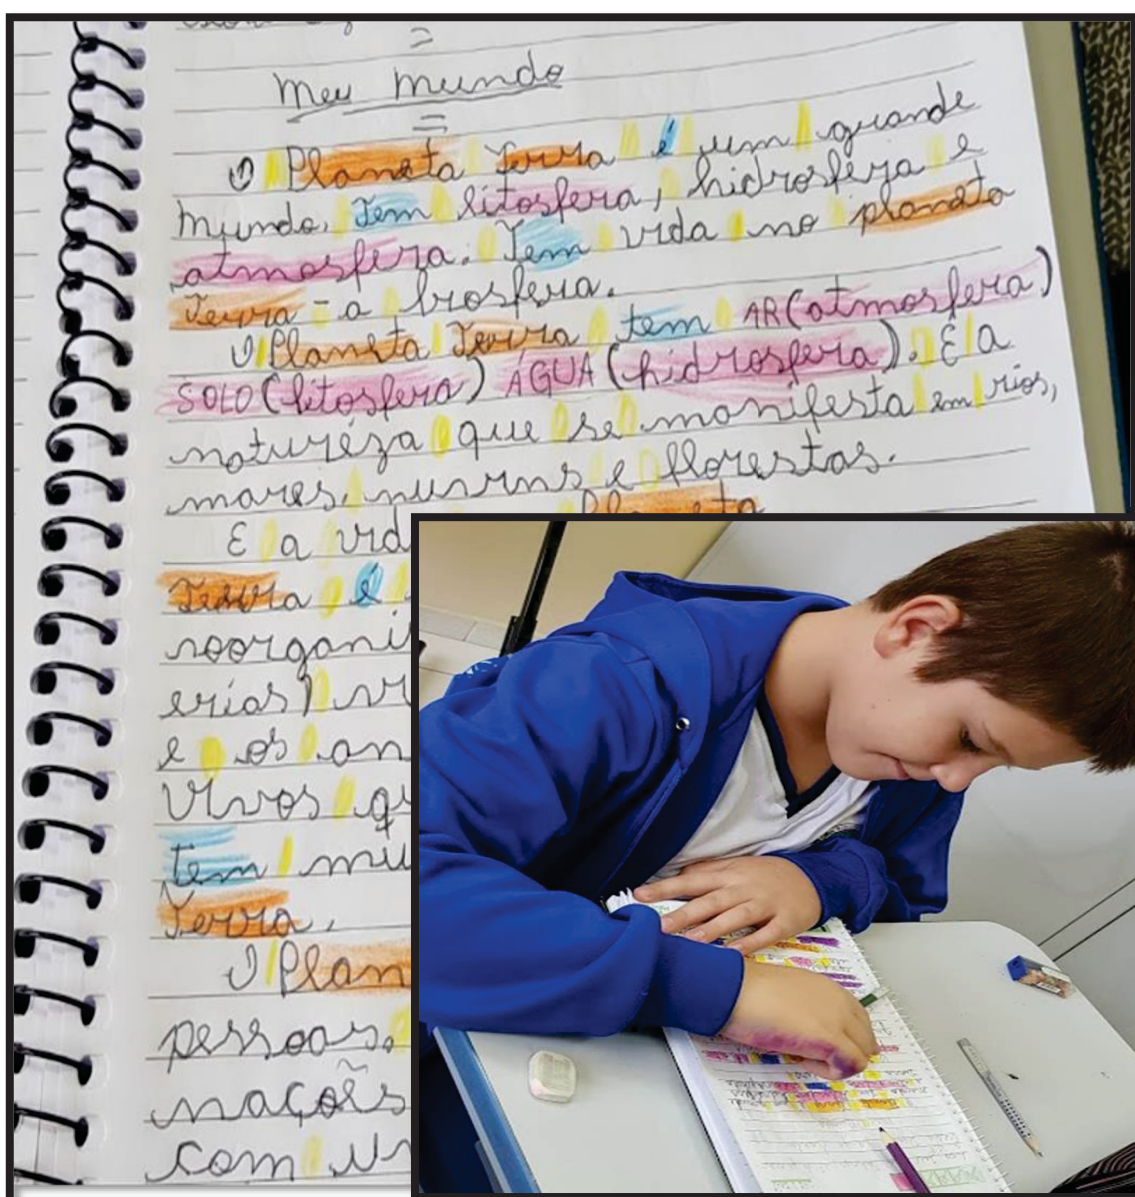 Meu mundo
O Planeta Terra é um grande
mundo. Tem litosfera, hidrosfera e
atmosfera. Tem vida no planeta
Terra - a biosfera.
O Planeta Terra tem AR (atmosfera)
SOLO (litosfera) ÁGUA (hidrosfera). É a
natureza que se manifesta em rios,
mares, nuvens e florestas.
E a vid
Planeta
Terra é
e os an
Vivos qu
tem mu
Terra.
O Plan
pessoas.
nações
com un